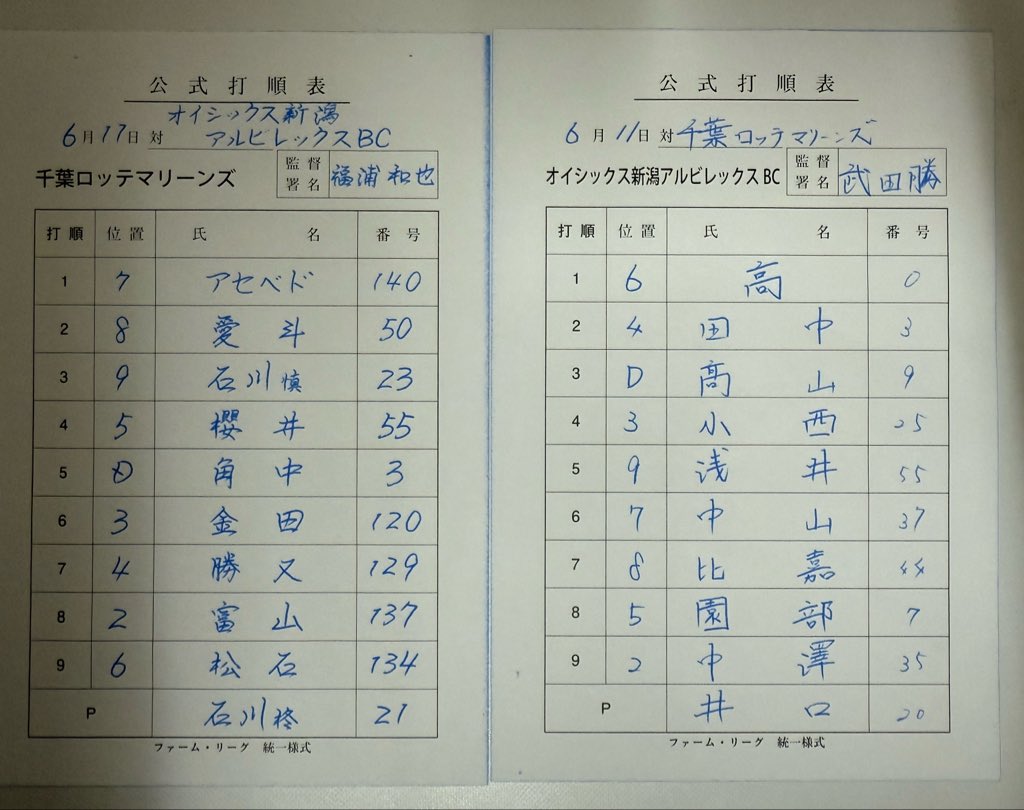 公式打順表
オイシックス新潟
6月17日 対 アルビレックスBC
千葉ロッテマリーンズ 監督署名 福浦和也
打順 位置 氏名 番号
1 7 アセベド 140
2 8 愛斗 50
3 9 石川慎 23
4 5 櫻井 55
5 D 角中 3
6 3 金田 120
7 4 勝又 129
8 2 富山 137
9 6 松石 134
P 石川柊 21
ファーム・リーグ 統一様式
公式打順表
6月11日 対 千葉ロッテマリーンズ
オイシックス新潟アルビレックスBC 監督署名 武田勝
打順 位置 氏名 番号
1 6 高 0
2 4 田中 3
3 D 髙山 9
4 3 小西 25
5 9 浅井 55
6 7 中山 37
7 8 比嘉 44
8 5 園部 7
9 2 中澤 35
P 井口 20
ファーム・リーグ 統一様式